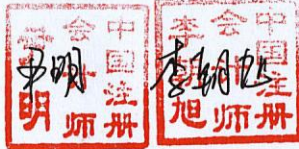 中国注册
会计师
明
中国注册
会计师
李朝旭
李朝旭